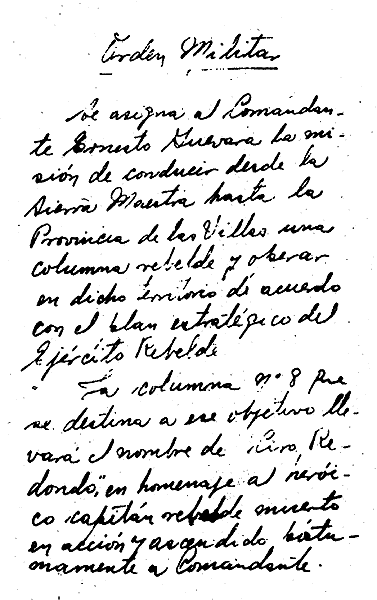 Orden Militar
Se asigna al Comandan-
te Ernesto Guevara la mi-
sión de conducir desde la
Sierra Maestra hasta la
Provincia de las Villas una
columna rebelde y operar
en dicho territorio de acuerdo
con el plan estratégico del
Ejército Rebelde
La columna nº 8 que
se destina a ese objetivo lle-
vará el nombre de "Ciro Re-
dondo", en homenaje al herói-
co capitán rebelde muerto
en acción y ascendido póstu-
mamente a Comandante.